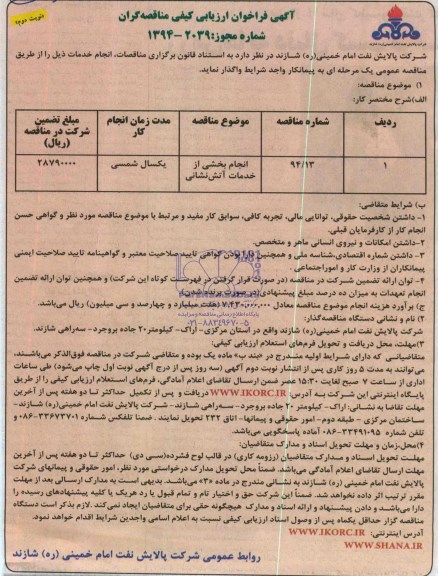 آگهی فراخوان ارزیابی کیفی مناقصه‌گران
شماره مجوز: ۲۰۳۹-۱۳۹۴
نوبت دوم
شرکت پالایش نفت امام خمینی(ره) شازند در نظر دارد به استناد قانون برگزاری مناقصات، انجام خدمات ذیل را از طریق
مناقصه عمومی یک مرحله ای به پیمانکار واجد شرایط واگذار نماید.
۱) موضوع مناقصه:
الف)شرح مختصر کار:
ردیف
شماره مناقصه
موضوع مناقصه
مدت زمان انجام کار
مبلغ تضمین شرکت در مناقصه (ریال)
۱
۹۴/۱۳
انجام بخشی از خدمات آتش‌نشانی
یکسال شمسی
۲۸۷۹۰۰۰۰
ب) شرایط متقاضی:
۱- داشتن شخصیت حقوقی، توانایی مالی، تجربه کافی، سوابق کار مفید و مرتبط با موضوع مناقصه مورد نظر و گواهی حسن
انجام کار از کارفرمایان قبلی.
۲-داشتن امکانات و نیروی انسانی ماهر و متخصص.
۳- داشتن شماره اقتصادی،شناسه ملی و همچنین دارا بودن گواهی تایید صلاحیت معتبر و گواهینامه تایید صلاحیت ایمنی
پیمانکاران از وزارت کار و اموراجتماعی.
۴- توان ارائه تضمین شرکت در مناقصه (در صورت قرار گرفتن در فهرست کوتاه این شرکت) و همچنین توان ارائه تضمین
انجام تعهدات به میزان ده درصد مبلغ پیشنهادی
ج) برآورد هزینه انجام موضوع مناقصه معادل ۷٫۴۳۰٫۰۰۰٫۰۰۰ (هفت میلیارد و چهارصد و سی میلیون) ریال می‌باشد.
۲) نام و نشانی دستگاه مناقصه‌گذار:
شرکت پالایش نفت امام خمینی(ره) شازند واقع در استان مرکزی-اراک- کیلومتر۲۰ جاده بروجرد- سه‌راهی شازند.
۳)مهلت، محل دریافت و تحویل فرم‌های استعلام ارزیابی کیفی:
متقاضیانی که دارای شرایط اولیه مندرج در «بند ب» ماده یک بوده و متقاضی شرکت در مناقصه فوق‌الذکر می‌باشند،
می‌توانند به مدت ۵ روز کاری پس از انتشار نوبت دوم آگهی (سه روز پس از درج آگهی نوبت اول چاپ می‌شود) طی ساعات
اداری از ساعت ۷ صبح لغایت ۱۵:۳۰ عصر ضمن ارسال تقاضای اعلام آمادگی، فرم‌های استعلام ارزیابی کیفی را از طریق
پایگاه اینترنتی این شرکت به آدرس WWW.IKORC.IR دریافت و پس از تکمیل حداکثر تا دو هفته پس از آخرین
مهلت تقاضا به نشانی: اراک - کیلومتر ۲۰ جاده بروجرد- سه‌راهی شازند- شرکت پالایش نفت امام خمینی(ره) شازند-
ساختمان مرکزی - طبقه دوم - امور حقوقی و پیمانها - اتاق ۲۳۲ تحویل نمایند. ضمنا تلفکس شماره ۳۳۶۷۳۷۰۱-۰۸۶
و تلفن شماره ۳۳۴۹۱۰۹۵-۰۸۶ آماده پاسخگویی می‌باشد.
۴)محل،زمان و مهلت تحویل اسناد و مدارک متقاضیان:
مهلت تحویل اسناد و مدارک متقاضیان (رزومه کاری) در قالب لوح فشرده(سی‌دی) حداکثر تا دو هفته پس از آخرین
مهلت ارسال تقاضای اعلام آمادگی می‌باشد. ضمناً محل تحویل مدارک درخواستی مورد نظر، امور حقوقی و پیمانهای شرکت
پالایش نفت امام خمینی (ره) شازند به نشانی مندرج در ماده «۳» می‌باشد. بدیهی است به مدارک ارسالی بعد از مهلت
مقرر ترتیب اثر داده نخواهد شد. ضمناً این شرکت حق و اختیار تام و تمام قبول یا رد هریک یا کلیه پیشنهادهای رسیده را
دارا می‌باشد و دادن پیشنهاد و ارائه اسناد و مدارک هیچگونه حقی برای متقاضیان ایجاد نمی‌کند. لازم بذکر است دستگاه
مناقصه گزار حداقل یکماه پس از وصول اسناد ارزیابی کیفی نسبت به اعلام اسامی واجدین شرایط اقدام خواهد نمود.
آدرس اینترنتی: WWW.IKORC.IR
WWW.SHANA.IR
روابط عمومی شرکت پالایش نفت امام خمینی (ره) شازند